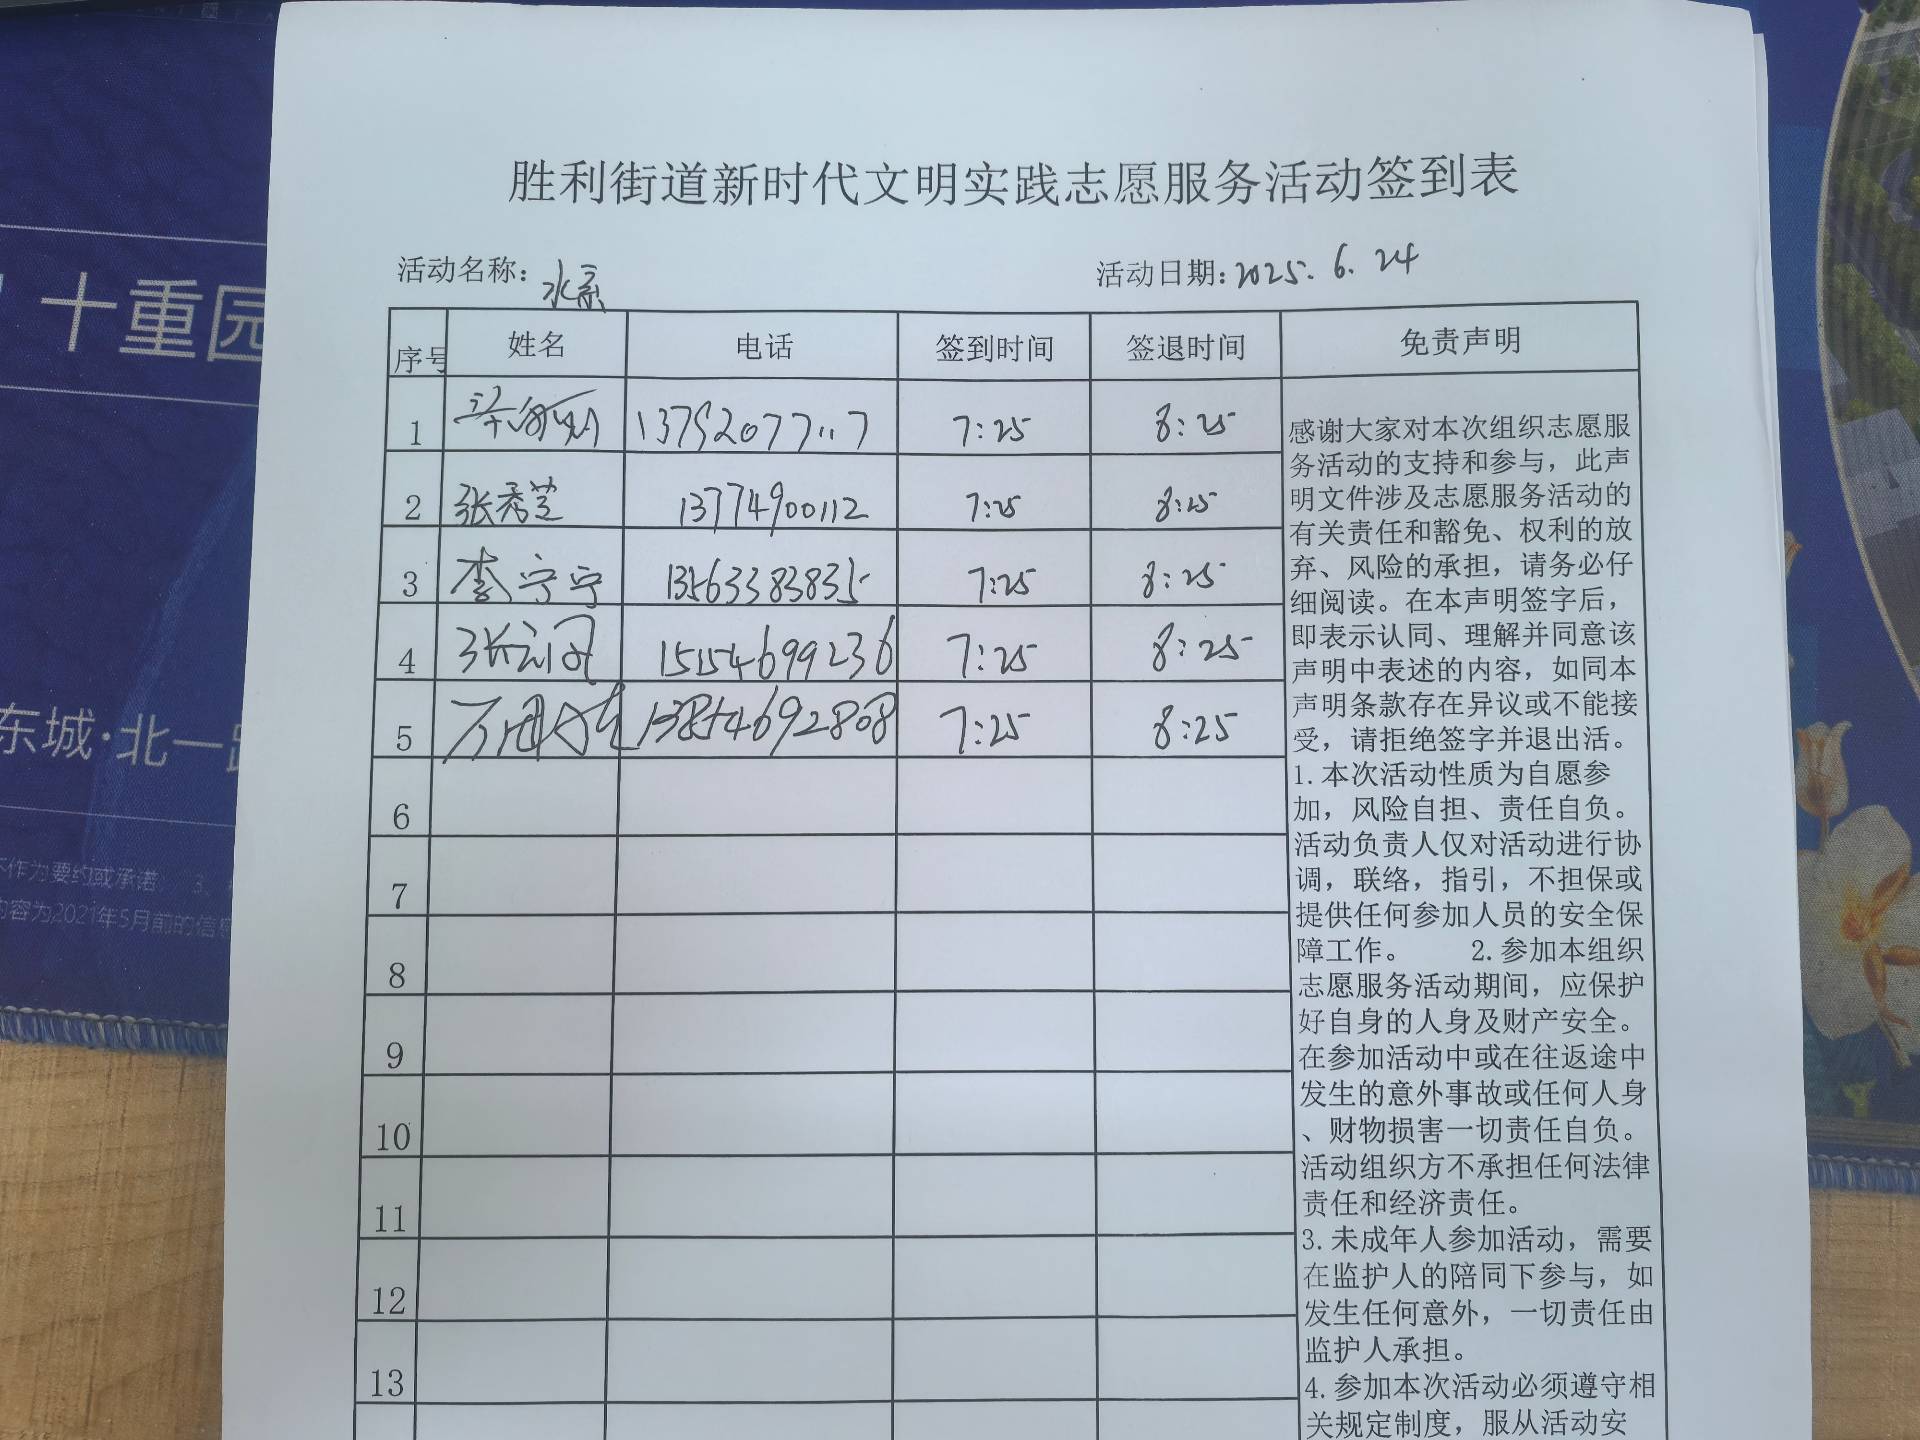 胜利街道新时代文明实践志愿服务活动签到表
活动名称：水系 活动日期：2025.6.24
序号 姓名 电话 签到时间 签退时间 免责声明
1 7:25 8:25
2 张秀芝 13774900112 7:25 8:25
3 李宁宁 13563383835 7:25 8:25
4 15154699236 7:25 8:25
5 13854692808 7:25 8:25
6
7
8
9
10
11
12
13
感谢大家对本次组织志愿服
务活动的支持和参与，此声
明文件涉及志愿服务活动的
有关责任和豁免、权利的放
弃、风险的承担，请务必仔
细阅读。在本声明签字后，
即表示认同、理解并同意该
声明中表述的内容，如同本
声明条款存在异议或不能接
受，请拒绝签字并退出活。
1.本次活动性质为自愿参
加，风险自担、责任自负。
活动负责人仅对活动进行协
调，联络，指引，不担保或
提供任何参加人员的安全保
障工作。 2.参加本组织
志愿服务活动期间，应保护
好自身的人身及财产安全。
在参加活动中或在往返途中
发生的意外事故或任何人身
、财物损害一切责任自负。
活动组织方不承担任何法律
责任和经济责任。
3.未成年人参加活动，需要
在监护人的陪同下参与，如
发生任何意外，一切责任由
监护人承担。
4.参加本次活动必须遵守相
关规定制度，服从活动安
十重园
东城·北一路
不作为要约或承诺。 3、
内容为2021年5月前的信息